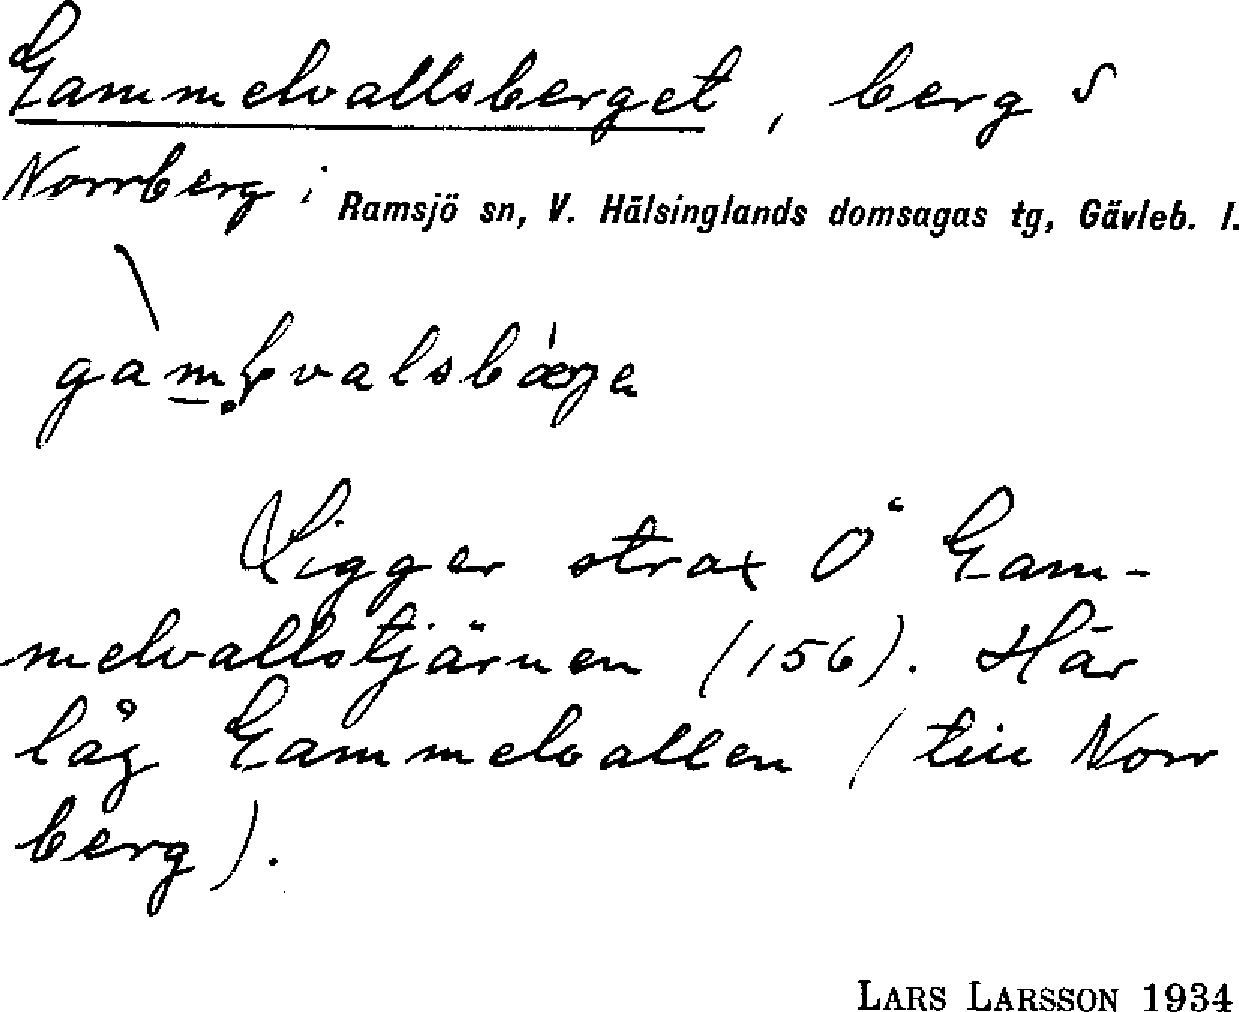 Gammelvallsberget, berg S
Norrberg i Ramsjö sn, V. Hälsinglands domsagas tg, Gävleb. l.
Ligger strax Ö Gam-
melvallstjärnen (156). Här
låg Gammelvallen (till Norr
berg).
LARS LARSSON 1934